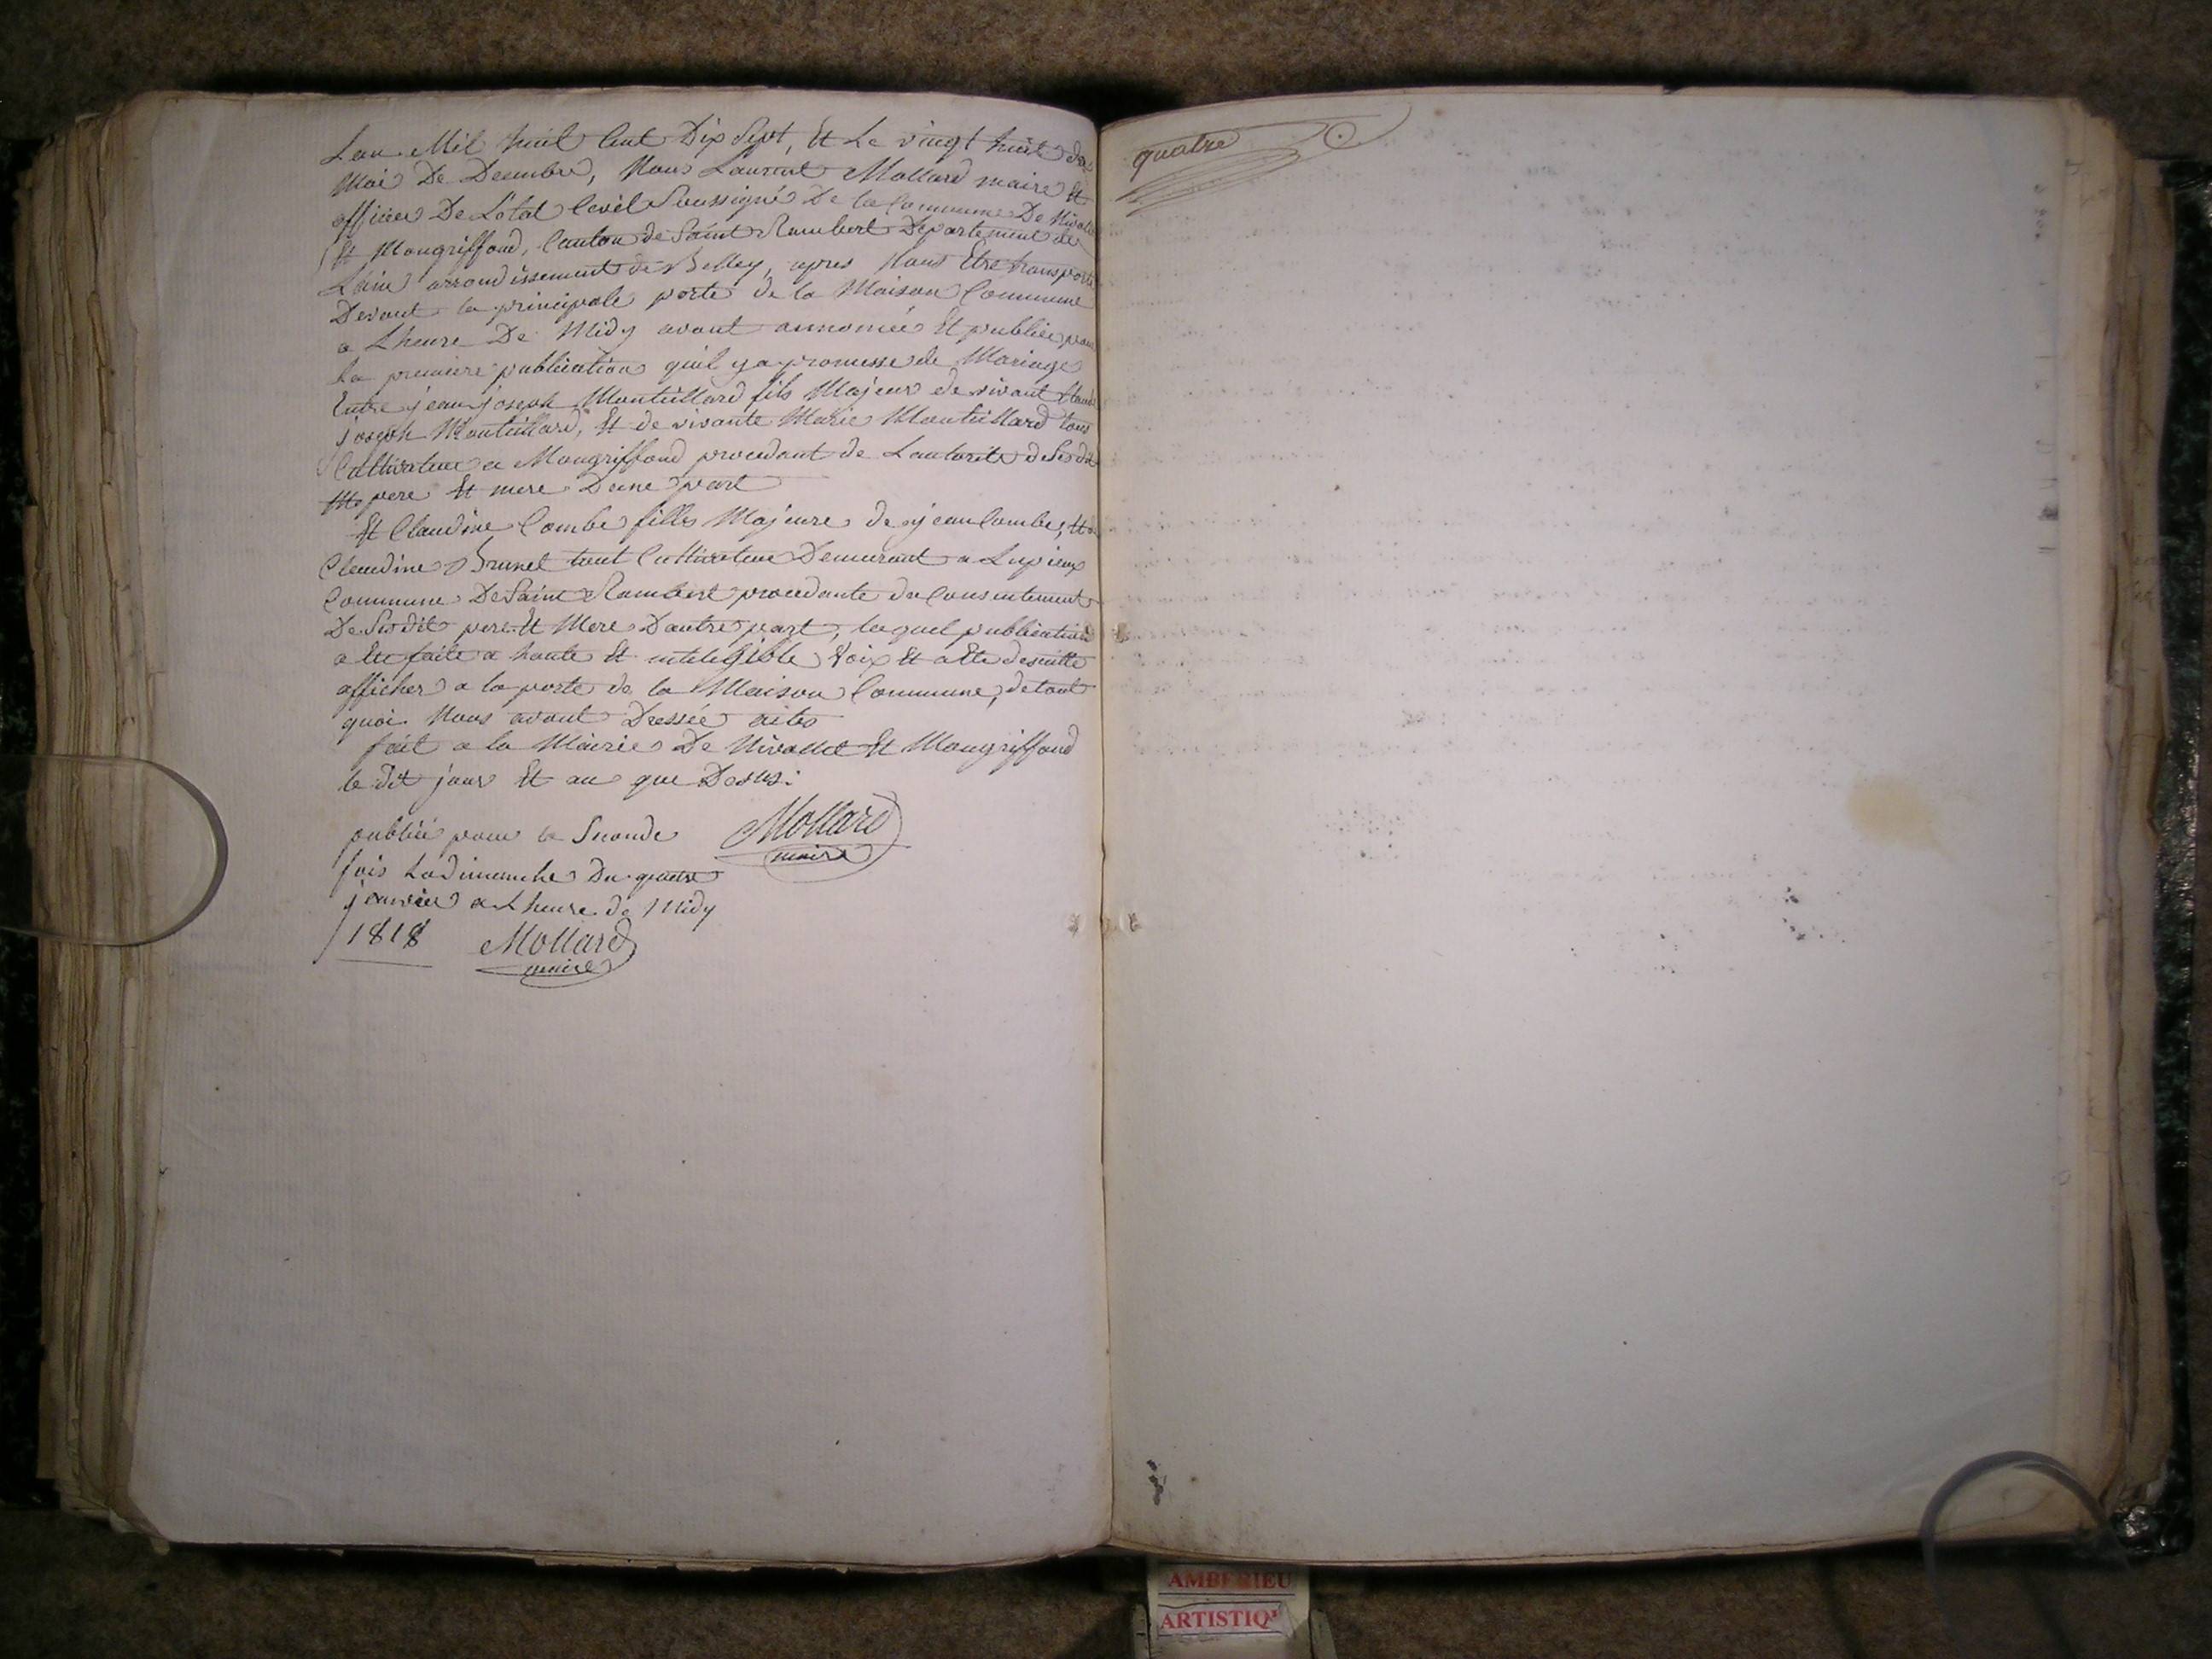 Lan Mil huil Cent Dix Sept, Et Le vingt huit du
Moi De Decembre, Nous Laurent Mollard maire Et
officier De Létat Cevil Soussigné De la Commune De Nivollet
Et Mongriffond, Canton de Saint Rambert Departement de
Lain arrondissement de Belley, apres Nous Etre transporté
Devant la principale porte de la Maison Commune
a Lheure De Midy avont annoncée Et publiée pour
La premiere publication quil y a promesse de Mariage
Entre jean joseph Montillard fils Majeur de vivant Claude
joseph Montillard, Et de vivante Marie Montillard tous
Cultivateur a Mongriffond procedant de Lautorité de Ses dit
pere Et mere Dune part
Et Claudine Combe fille Majeure de jean Combe, Et de
Claudine Brunet tout Cultivateur Demeurant a Lupieux
Commune De Saint Rambert procedante du Consentement
De Ses dit pere Et Mere Dautre part, lequel publication
a Ete faite a haute Et inteligible Voix Et a Ete desuitte
afficher a la porte de la Maison Commune, de tout
quoi Nous avont Dressée actes
fait a la Mairie De Nivollet Et Mongriffond
le dit jour Et an que Desus:
publiée pour la Seconde Mollard
maire
fois Le dimanche Du quatre
janvier a Lheure de Midy
1818 Mollard
maire
quatre
AMBERIEU
ARTISTIQ